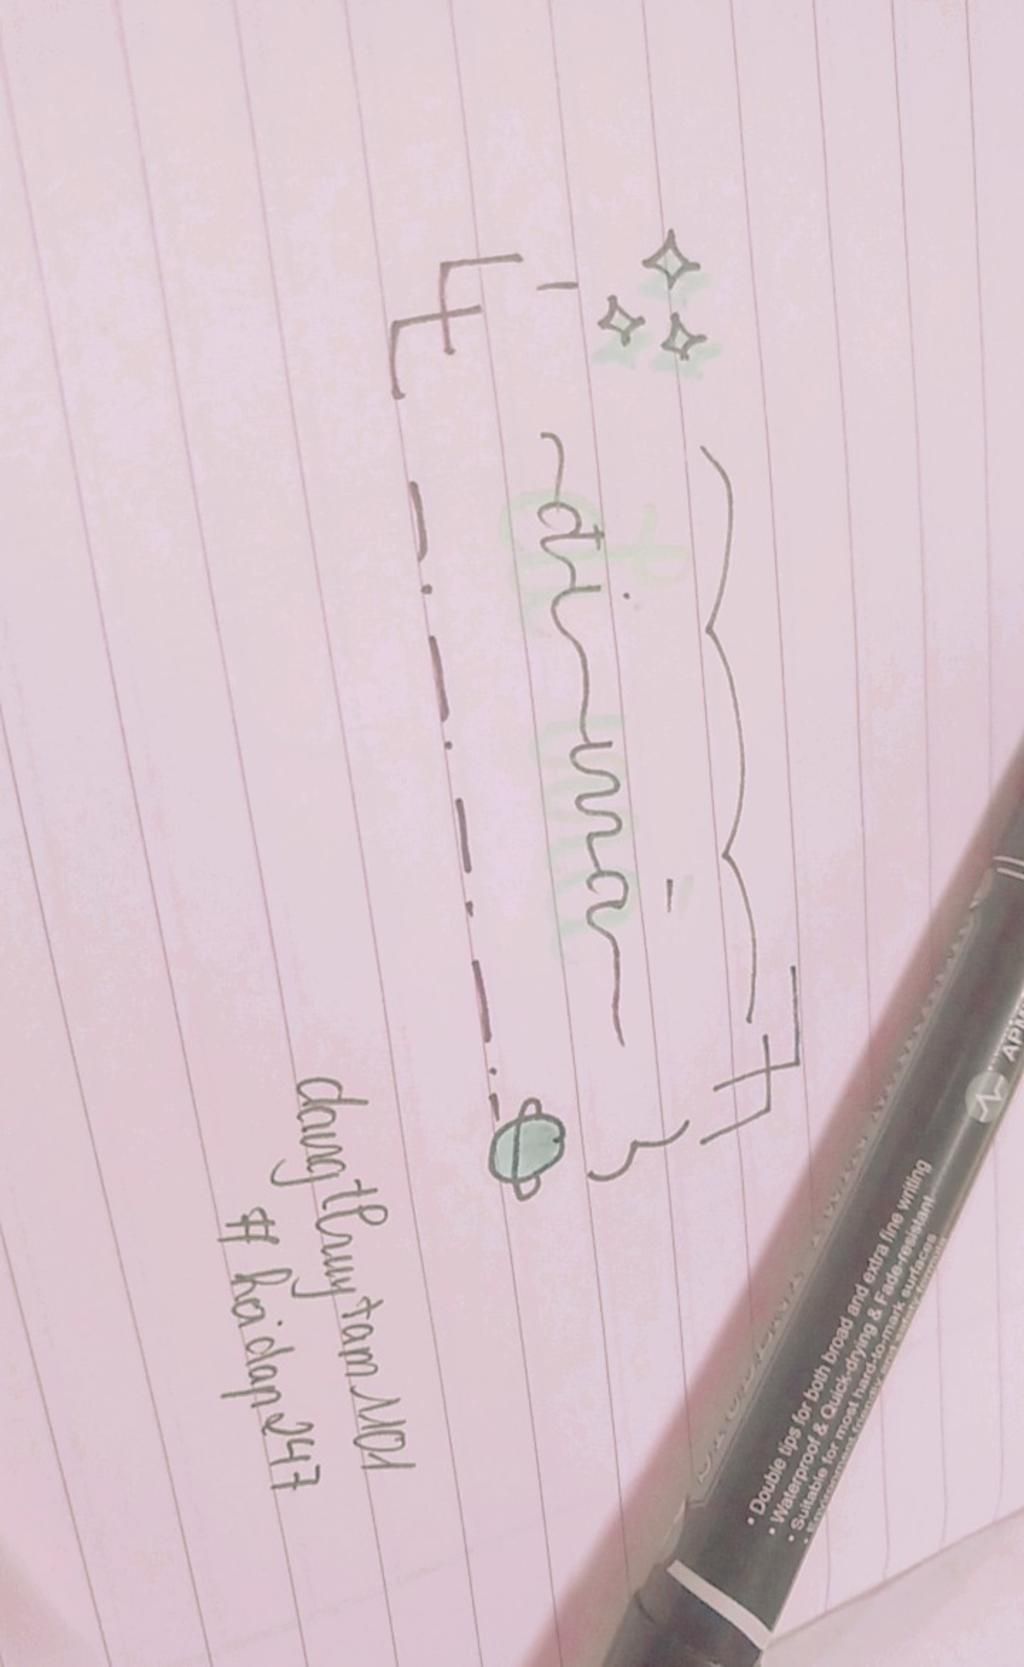 di ma
dangthuytam1101
# hoidap247
APM
• Double tips for both broad and extra fine writing
• Waterproof & Quick-drying & Fade-resistant
• Suitable for most hard-to-mark surfaces
• Environment friendly and